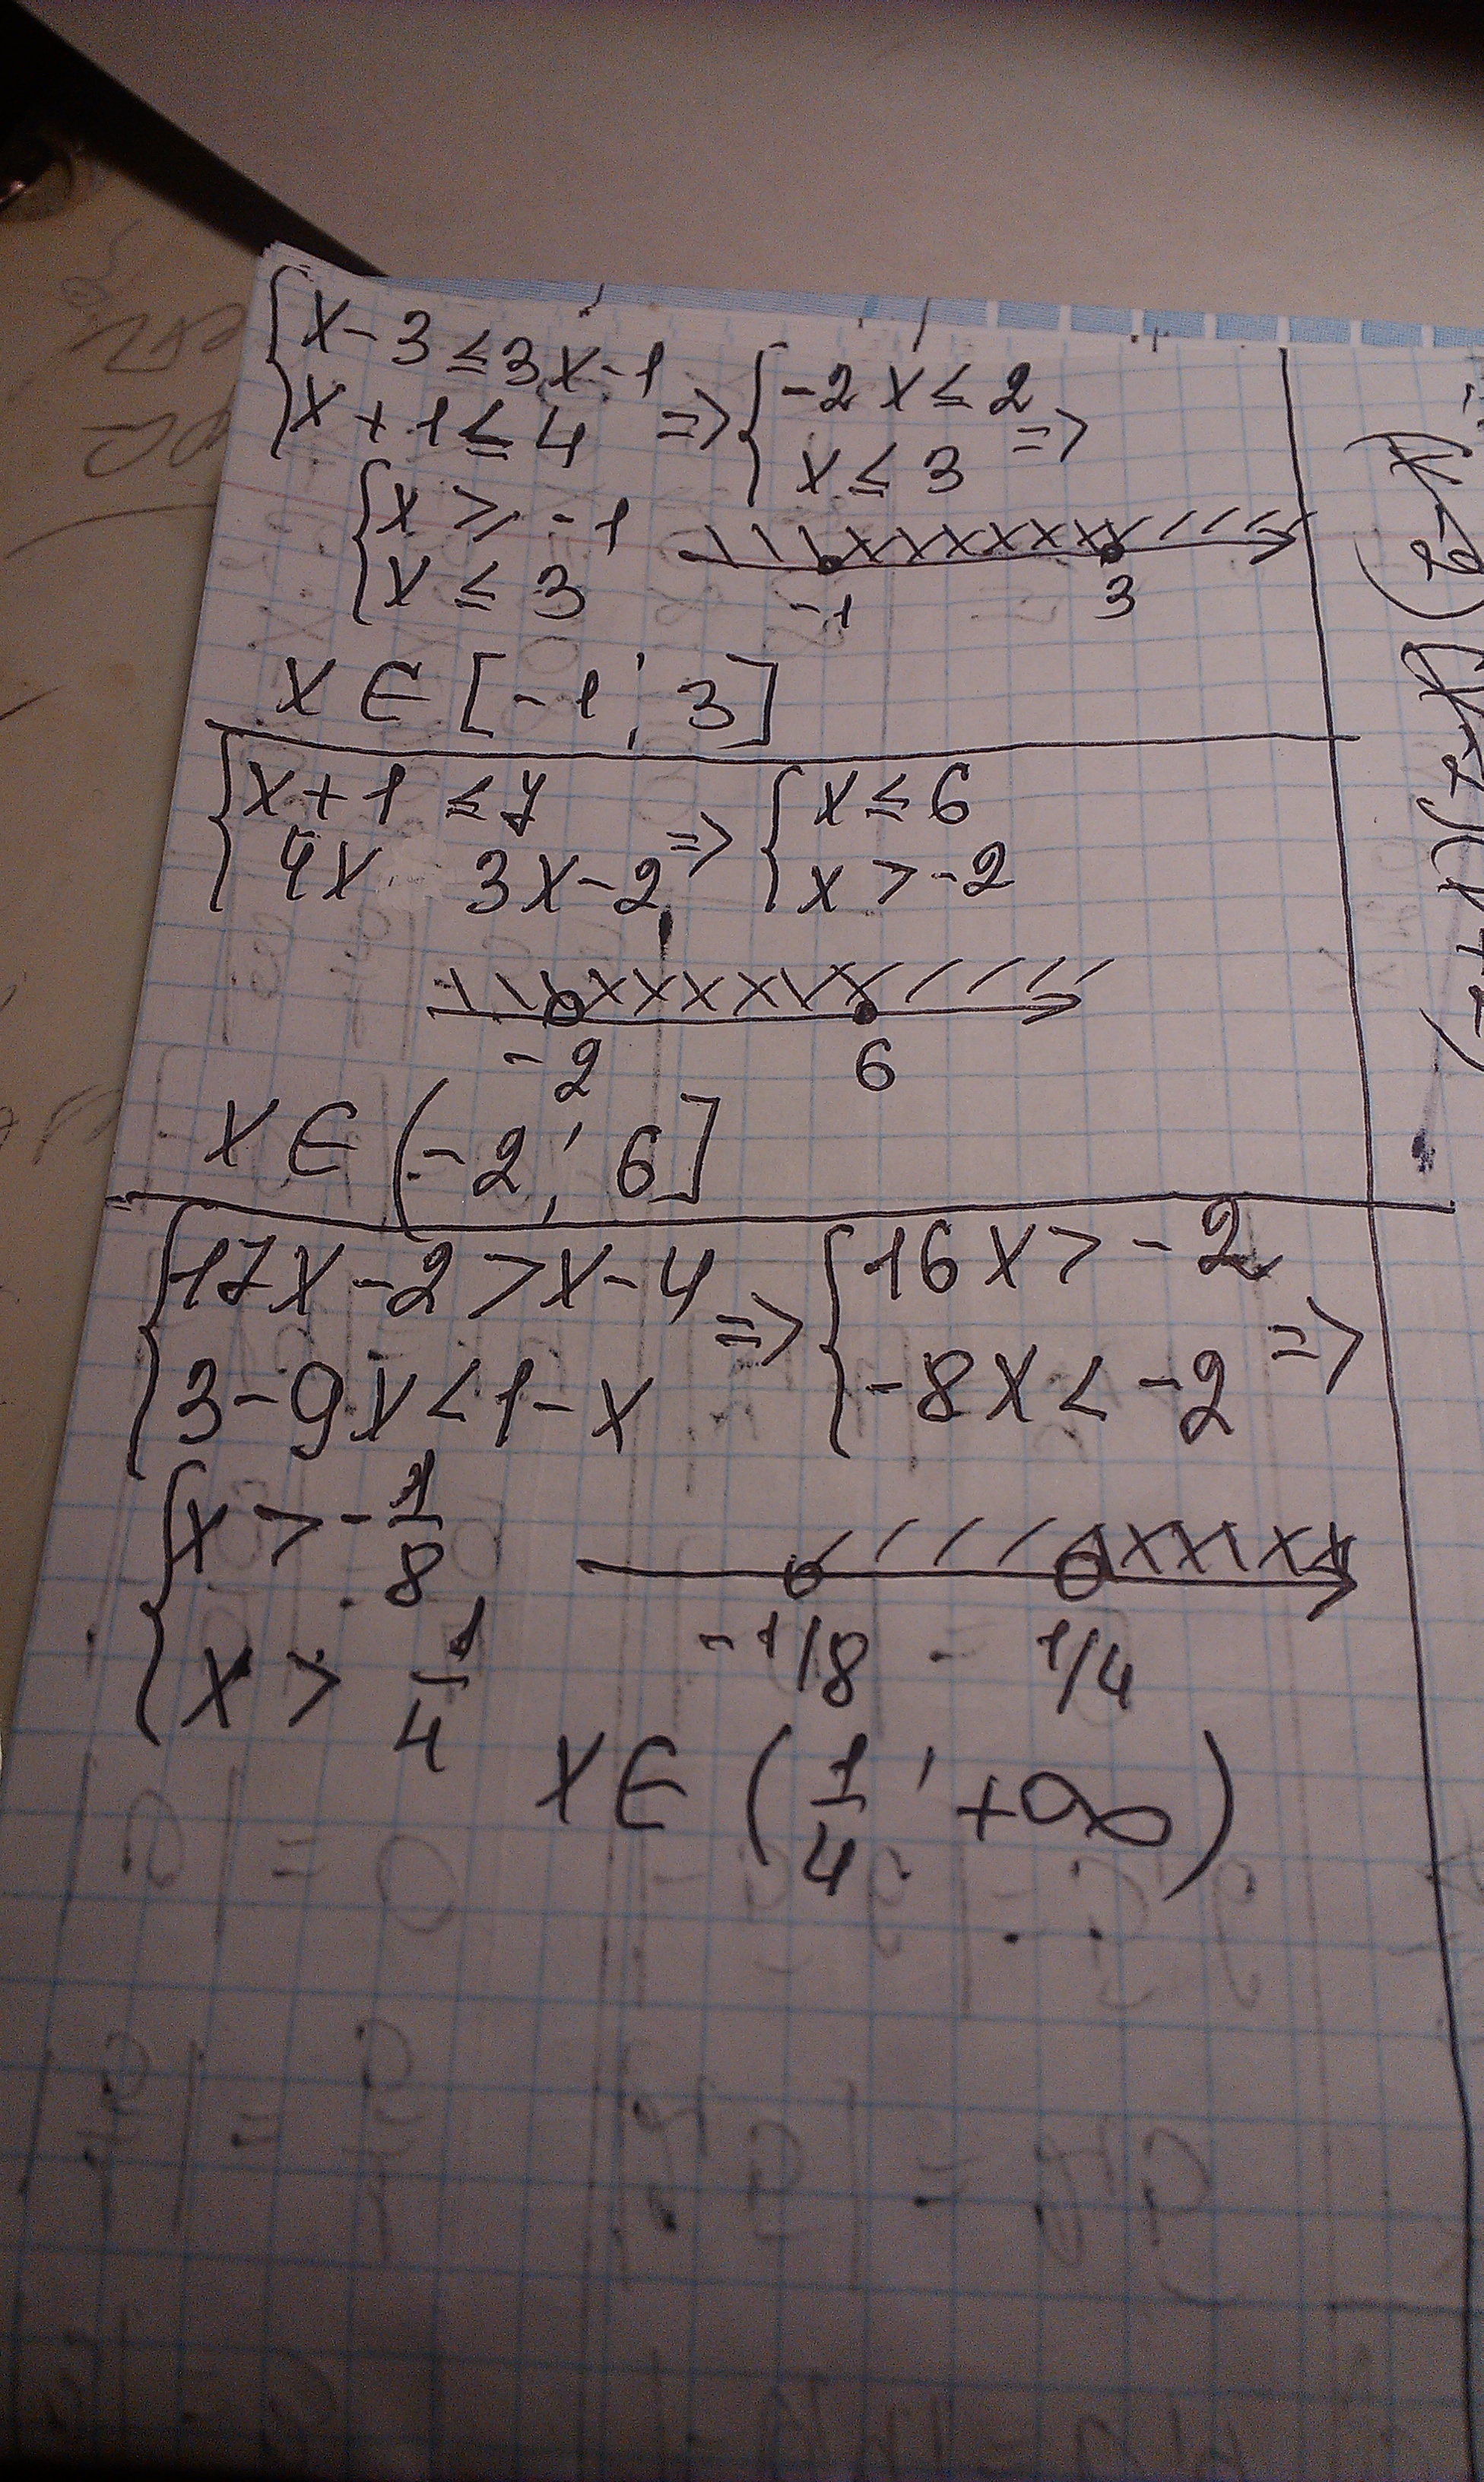 { x - 3 ≤ 3x - 1
{ x + 1 ≤ 4 => { -2x ≤ 2
{ x ≤ 3 =>
{ x ≥ -1
{ x ≤ 3
-1 3
x ∈ [-1; 3]
{ x + 1 ≤ 7
{ 4x 3x - 2 => { x ≤ 6
{ x > -2
-2 6
x ∈ (-2; 6]
{ 17x - 2 > x - 4
{ 3 - 9x < 1 - x => { 16x > -2
{ -8x < -2 =>
{ x > -1/8
{ x > 1/4
-1/8 1/4
x ∈ (1/4; +∞)